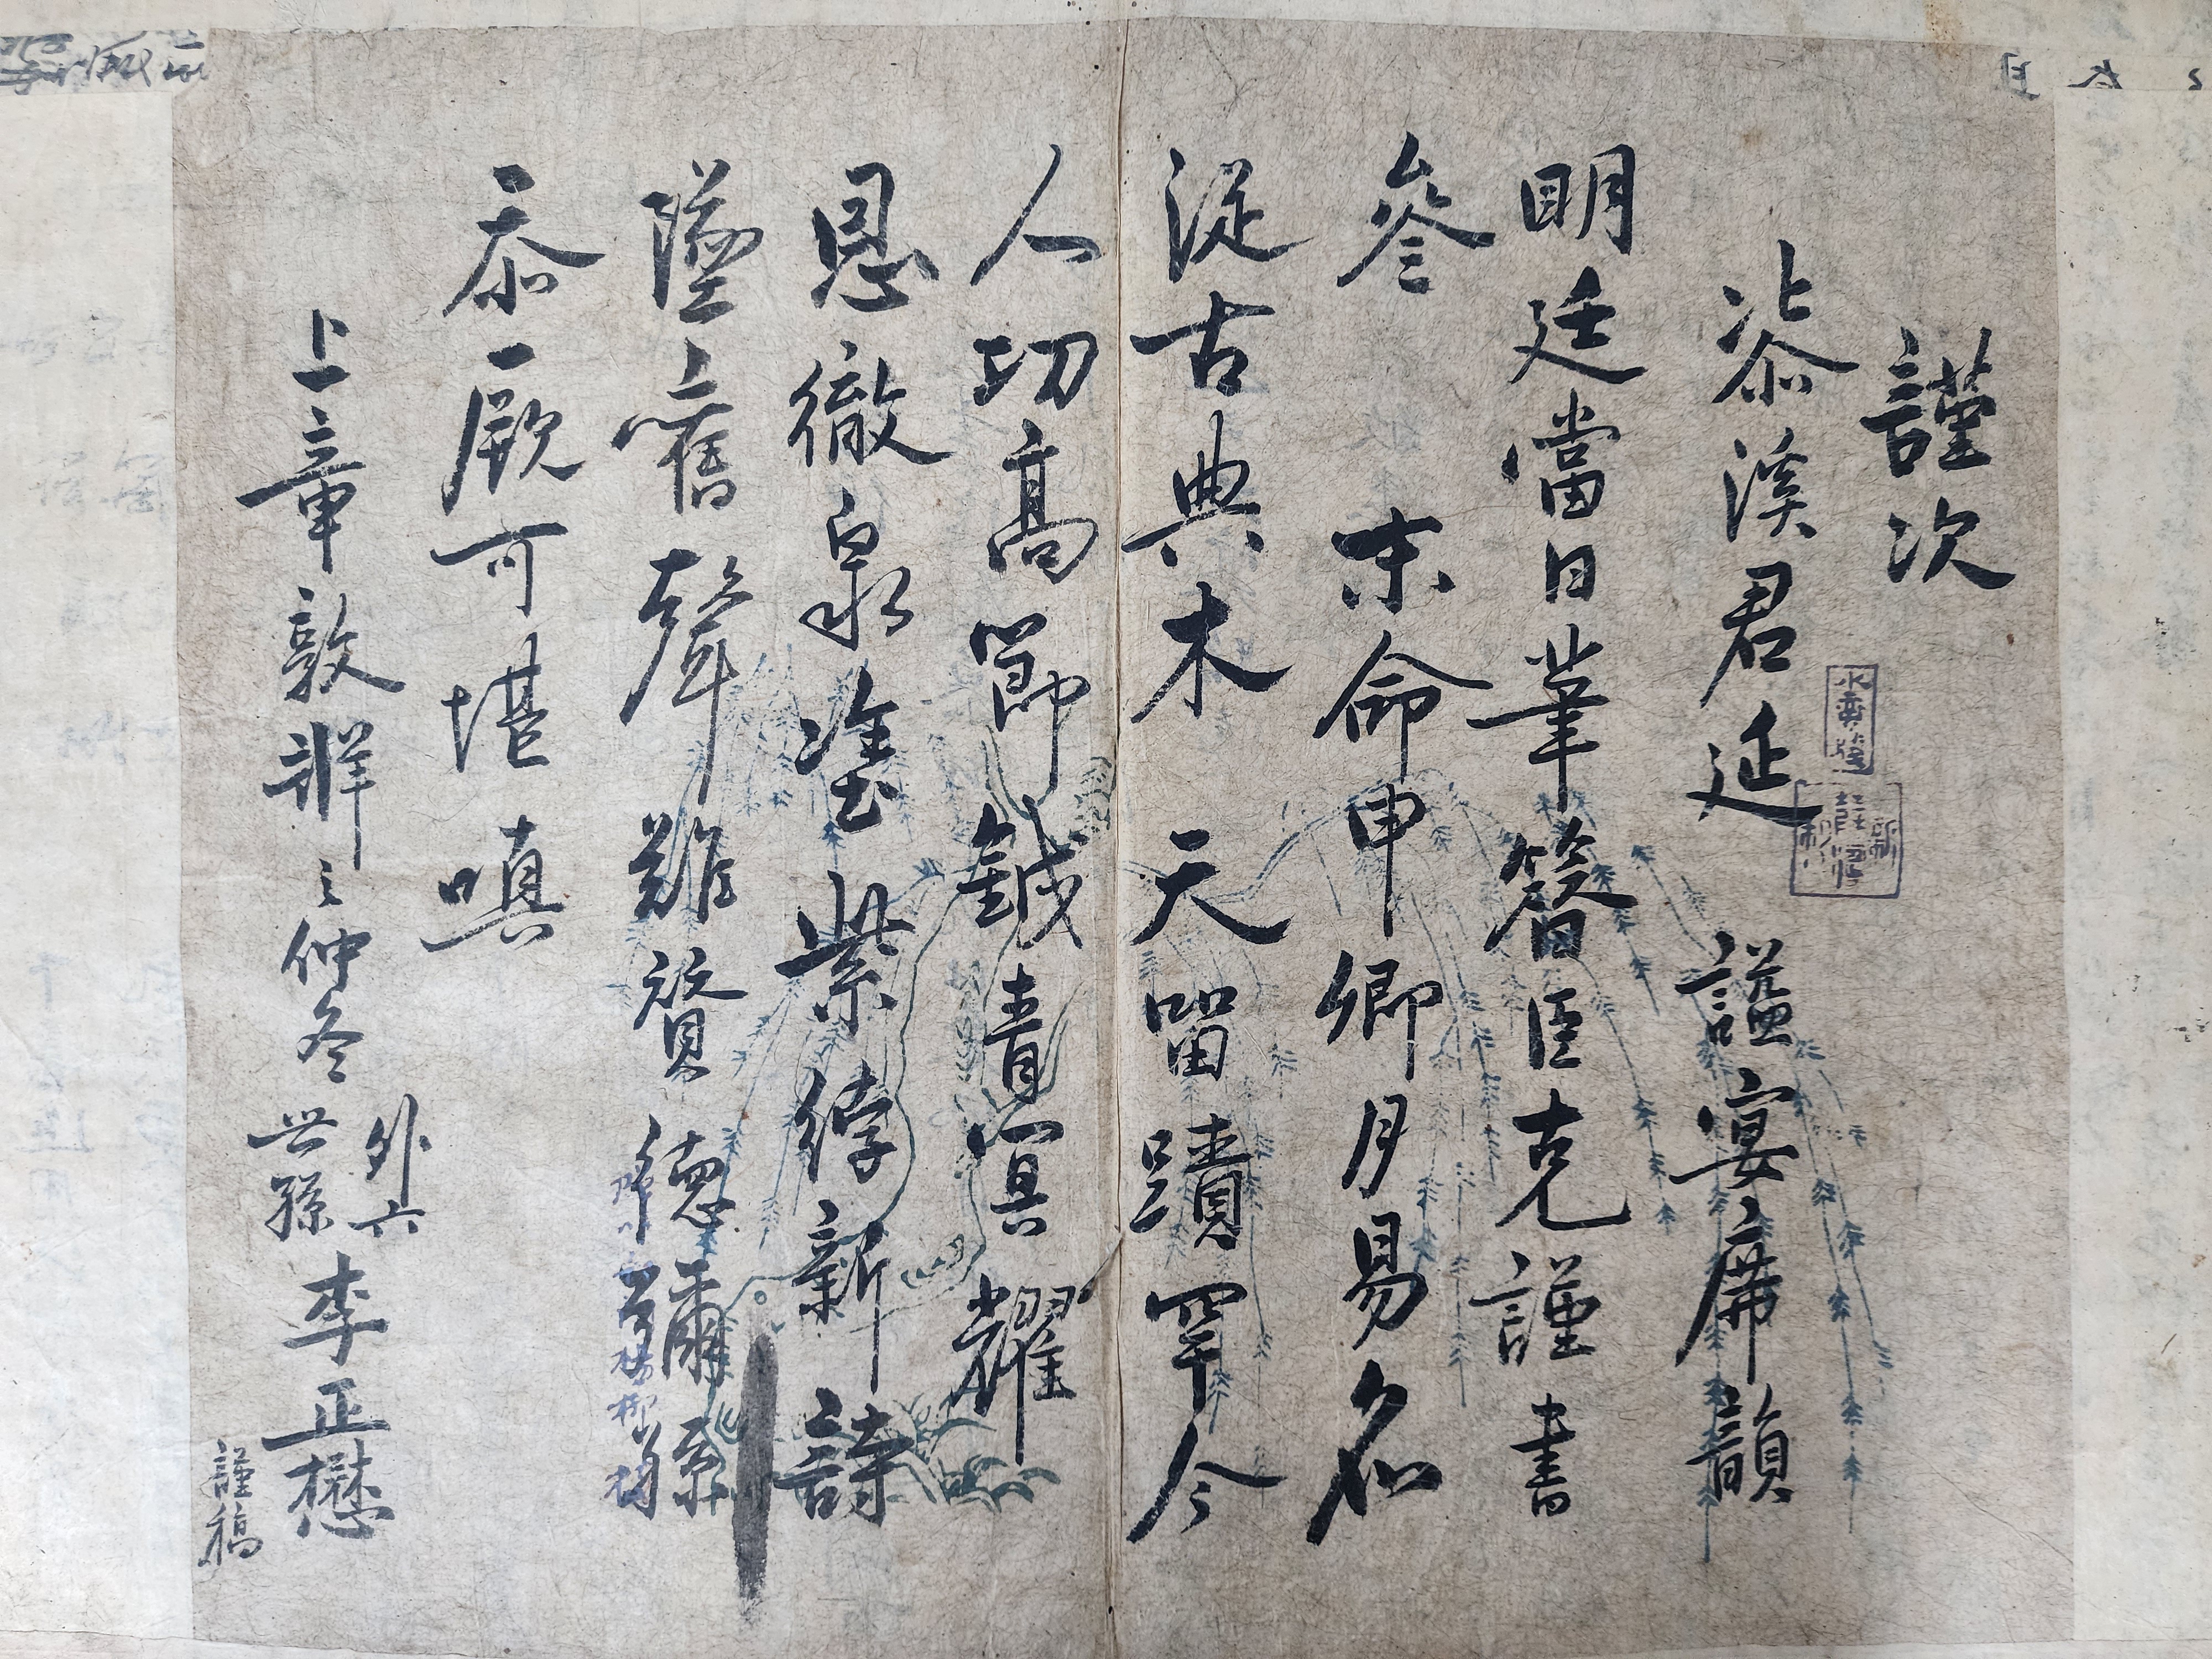 謹次
㳟溪君延 謚宴席韻
明廷當日華簪臣克謹書
參 末命申鄉月易名
從古典木天留蹟罕今
人功高節鉞青冥耀
恩徹泉塗紫綍新詩
墜舊聲難贊德彌孫
忝厥可堪嗔
上章敦牂之仲冬 外六世孫李正懋謹稿